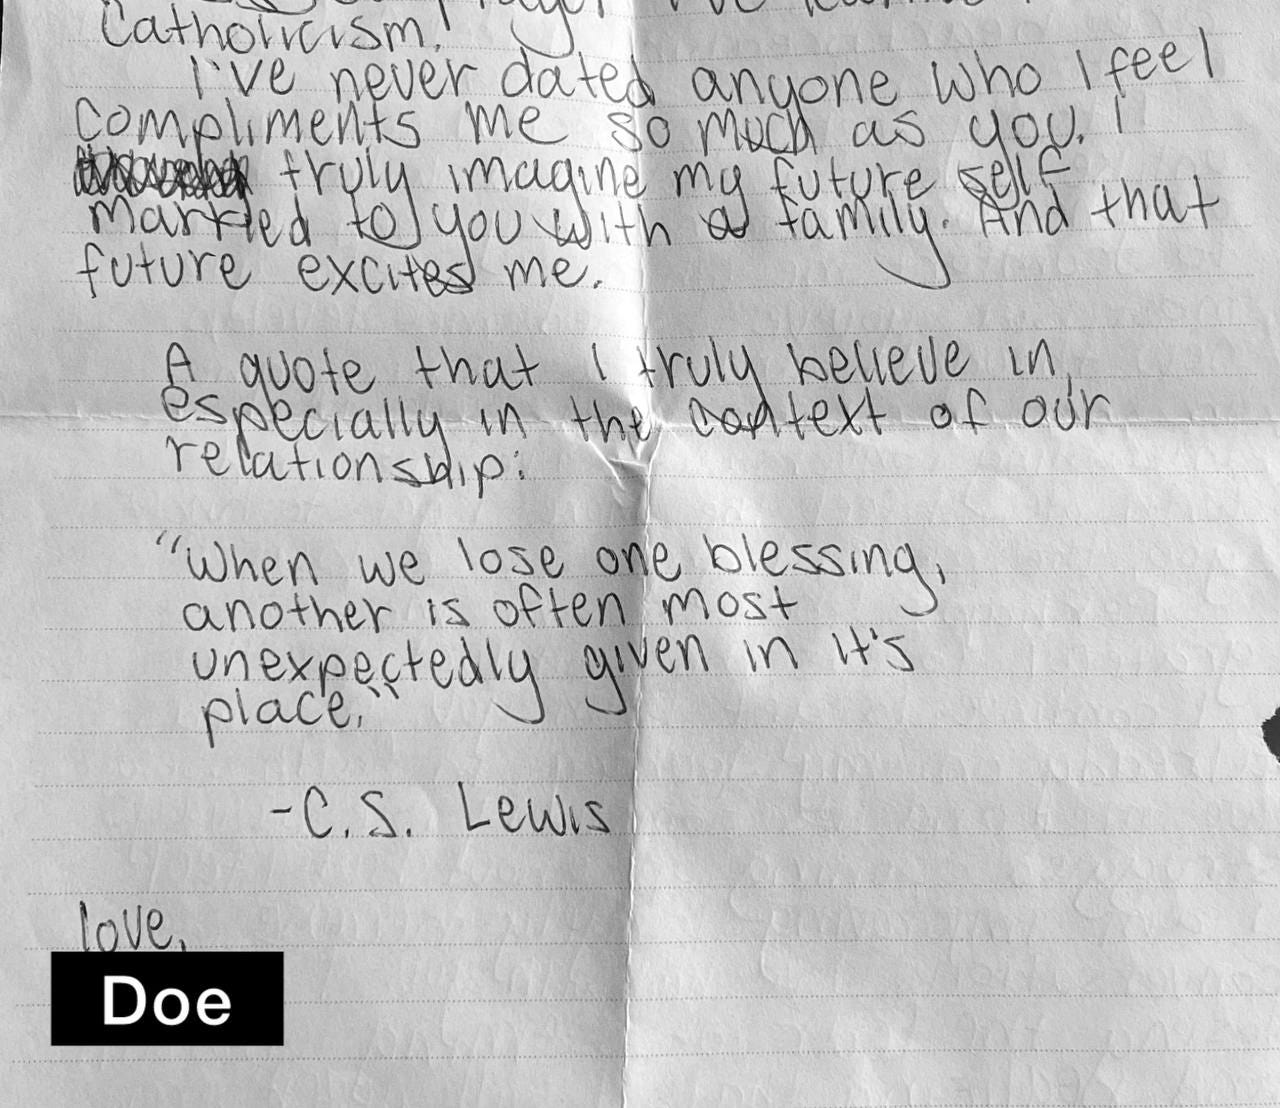 Catholicism!
I've never dated anyone who I feel
compliments me so much as you. I
truly imagine my future self
married to you with a family. And that
future excites me.
A quote that I truly believe in,
especially in the context of our
relationship:
"When we lose one blessing,
another is often most
unexpectedly given in it's
place."
-C.S. Lewis
love,
Doe